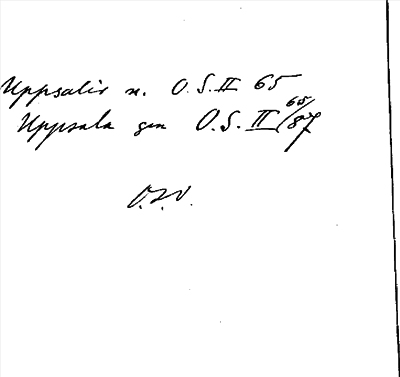 Uppsalir n. O.S. II 65
Uppsala gen O.S. II 65/87
O.S.V.